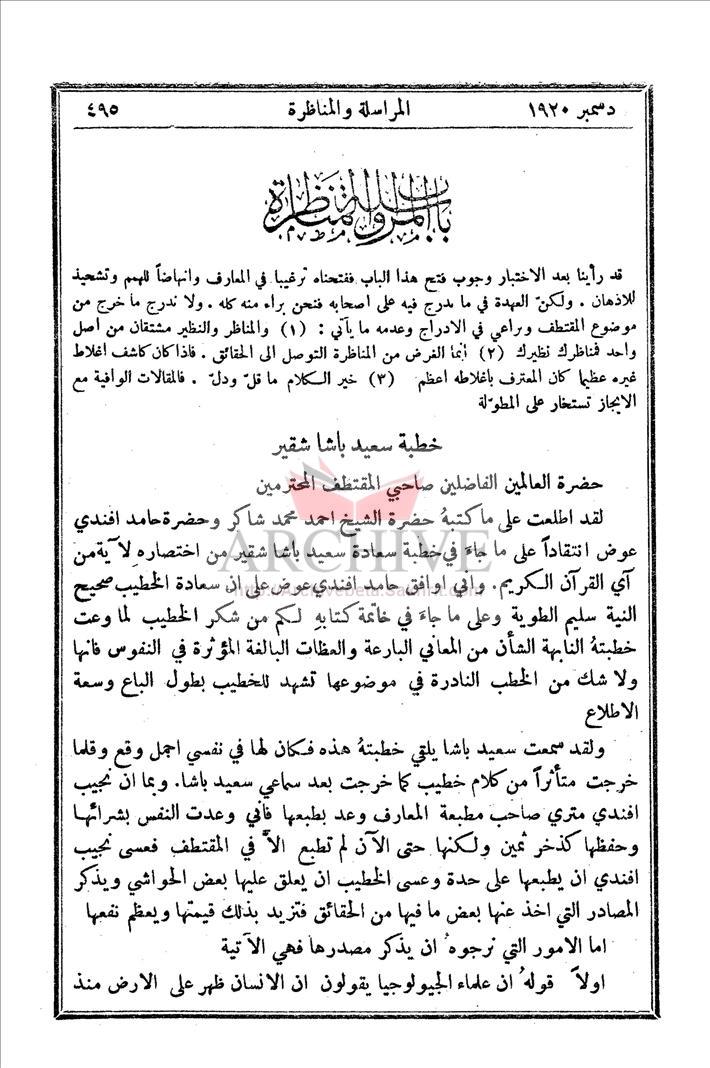 دسمبر ١٩٢٠
المراسلة والمناظرة
٤٩٥
باب المراسلة والمناظرة
قد رأينا بعد الاختبار وجوب فتح هذا الباب ففتحناه ترغيبا في المعارف وانهاضاً للهمم وتشحيذ
للاذهان . ولكنّ العهدة في ما يدرج فيه على اصحابه فنحن براء منه كله . ولا ندرج ما خرج عن
موضوع المقتطف ونراعي في الادراج وعدمه ما يأتي : (١) والمناظر والنظير مشتقان من اصل
واحد فمناظرك نظيرك (٢) انما الغرض من المناظرة التوصل الى الحقائق . فاذا كان كاشف اغلاط
غيره عظيما كان المعترف باغلاطه اعظم (٣) خير الكلام ما قلّ ودلّ . فالمقالات الوافية مع
الايجاز تستخار على المطوّلة
خطبة سعيد باشا شقير
حضرة العالمين الفاضلين صاحبي المقتطف المحترمين
لقد اطلعت على ما كتبهُ حضرة الشيخ احمد محمد شاكر وحضرة حامد افندي
عوض انتقاداً على ما جاءَ في خطبة سعادة سعيد باشا شقير من اختصاره لآية من
آي القرآن الكريم. واني اوافق حامد افندي عوض على ان سعادة الخطيب صحيح
النية سليم الطوية وعلى ما جاءَ في خاتمة كتابهِ لكم من شكر الخطيب لما وعت
خطبتهُ النابهة الشأن من المعاني البارعة والعظات البالغة المؤثرة في النفوس فانها
ولا شك من الخطب النادرة في موضوعها تشهد للخطيب بطول الباع وسعة
الاطلاع
ولقد سمعت سعيد باشا يلقي خطبتهُ هذه فكان لها في نفسي اجمل وقع وقلما
خرجت متأثراً من كلام خطيب كما خرجت بعد سماعي سعيد باشا. وبما ان نجيب
افندي متري صاحب مطبعة المعارف وعد بطبعها فاني وعدت النفس بشرائها
وحفظها كذخر ثمين ولكنها حتى الآن لم تطبع الاَّ في المقتطف فعسى نجيب
افندي ان يطبعها على حدة وعسى الخطيب ان يعلق عليها بعض الحواشي ويذكر
المصادر التي اخذ عنها بعض ما فيها من الحقائق فتزيد بذلك قيمتها ويعظم نفعها
اما الامور التي نرجوهُ ان يذكر مصدرها فهي الآتية
اولاً قولهُ ان علماء الجيولوجيا يقولون ان الانسان ظهر على الارض منذ
ARCHIVE